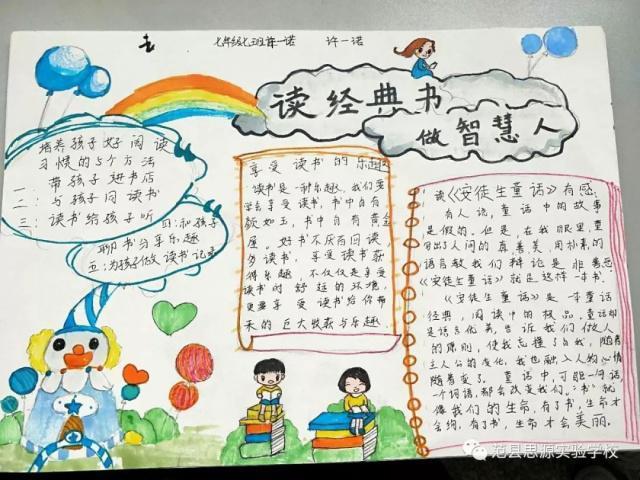 七年级七班许一诺 许一诺
读经典书
做智慧人
培养孩子好阅读
习惯的5个方法
一：带孩子进书店
二：与孩子同读书
三：读书给孩子听
四：和孩子
聊书分享乐趣
五：为孩子做读书记录
享受读书的乐趣
读书是一种乐趣，我们要
学会享受读书，书中自有
颜如玉，书中自有黄金
屋。好书不厌百回读，
多读书，享受读书获
得乐趣，不仅仅是享受
读书时舒适的环境，
更要享受读书给你带
来的巨大收获与乐趣。
读《安徒生童话》有感：
有人说，童话中的故事
是假的。但是，在我眼里，童
话写出了人间的真善美，用朴素的
语言教我们辩论是非善恶
《安徒生童话》就是这样一本书。
《安徒生童话》是一本童话
经典，阅读中的极品，童话却
是语言优美，告诉我们做人
的原则，使我忘掉了自我，随着
主人公的变化，我也融入人物心情
随着变了。童话中，可能一句话，
一个词语，都会改变我们。"书"就
像我们的生命，有了书，生命才
会绚，有了书，生命才会美丽。
范县思源实验学校